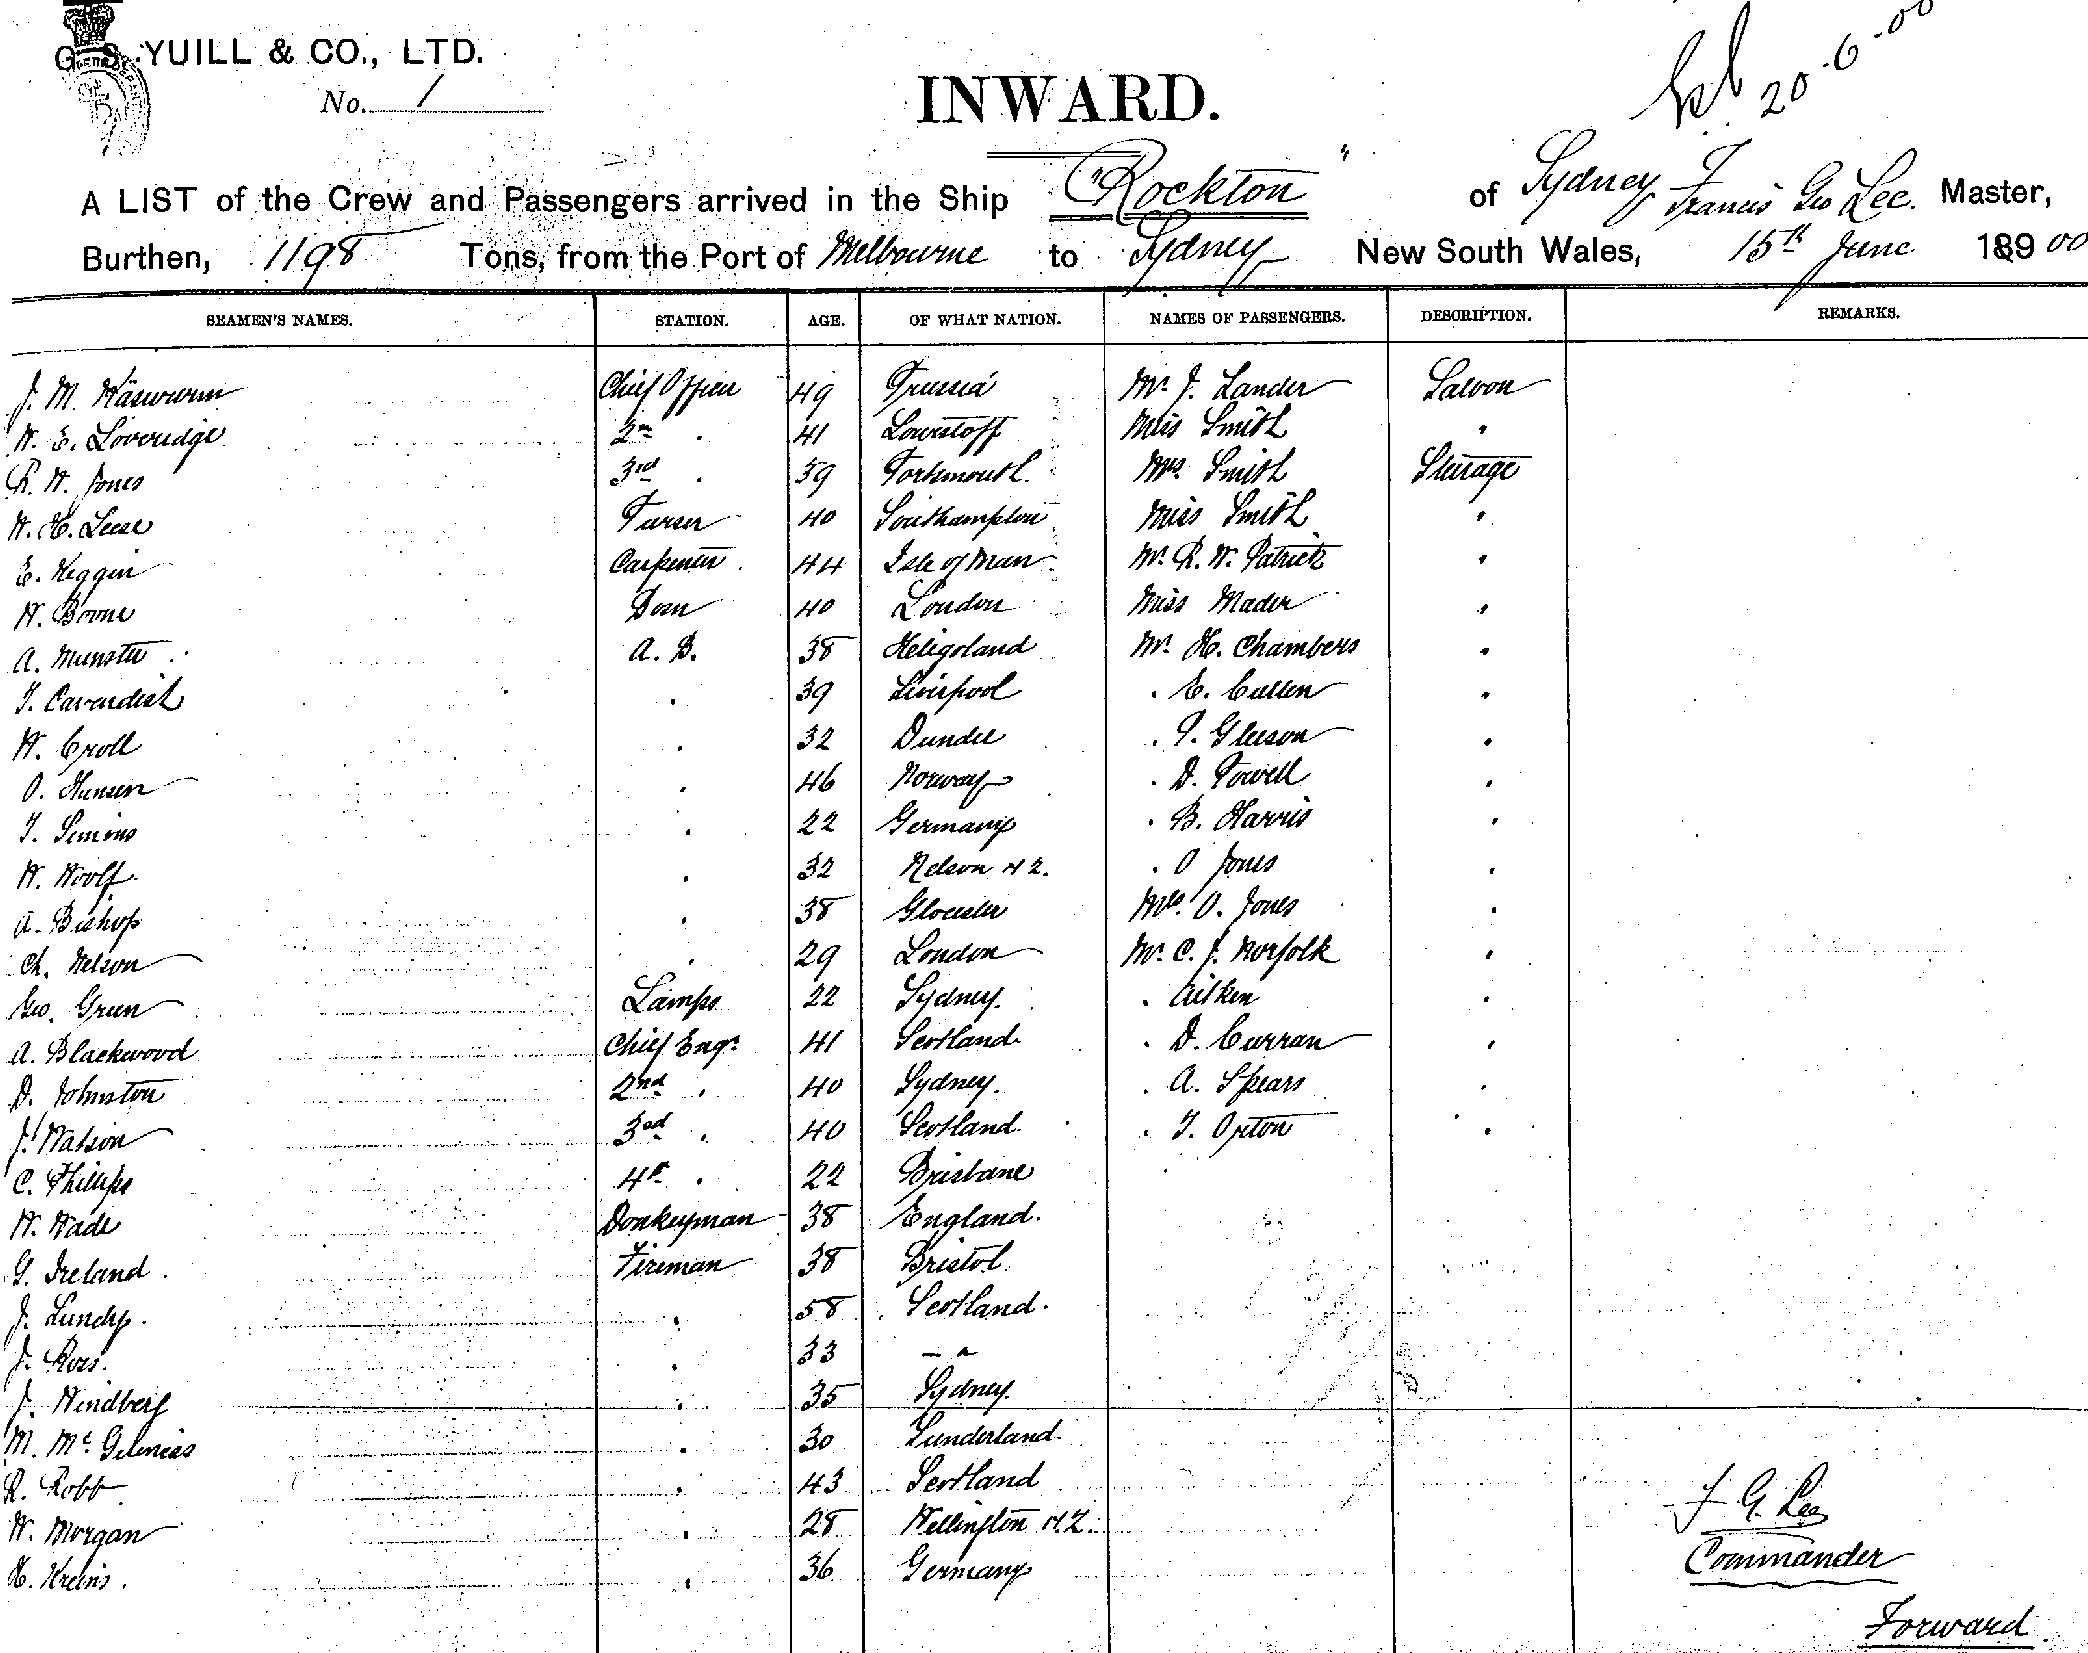 G. S. YUILL & CO., LTD.
No. 1
INWARD.
20-6-00
A LIST of the Crew and Passengers arrived in the Ship "Rockton" of Sydney Francis Geo Lee. Master,
Burthen, 1198 Tons, from the Port of Melbourne to Sydney New South Wales, 15th June 189 00
SEAMEN'S NAMES. STATION. AGE. OF WHAT NATION. NAMES OF PASSENGERS. DESCRIPTION. REMARKS.
J. M. Chief Officer 49 Prussia Mr J. Lander Saloon
W. E. Loveridge 2nd " 41 Lowestoff Miss Smith "
R. W. Jones 3rd " 39 Portsmouth Mrs Smith Steerage
W. H. Leese Purser 40 Southampton Miss Smith "
E. Keggin Carpenter 44 Isle of Man Mr R. W. Patrick "
W. Boone Bosn 40 London Miss Mader "
A. Munster A. B. 38 Heligoland Mr H. Chambers "
T. Cavendish " 39 Liverpool " E. Cullen "
W. Croll " 32 Dundee " P. Gleeson "
O. Hansen " 46 Norway " D. Powell "
T. Simons " 22 Germany " B. Harris "
W. Woolf " 32 Nelson N Z. " O Jones "
A. Bishop " 38 Glocester Mrs. O. Jones "
Ch. Nelson " 29 London Mr C. J. Norfolk "
Geo. Green Lamps 22 Sydney. " Aitken "
A. Blackwood Chief Engr 41 Scotland " D. Curran "
D. Johnston 2nd " 40 Sydney. " A. Spears "
J. Watson 3rd " 40 Scotland " T. Orton "
C. Phillips 4th " 22 Brisbane
W. Wade Donkeyman 38 England.
G. Ireland Fireman 38 Bristol
J. Lundy. " 58 Scotland.
J. Ross. " 33 - "
J. Windberg " 35 Sydney.
M. Mc " 30 Sunderland
R. Robb " 43 Scotland
W. Morgan " 28 Wellington N Z.
H. " 36 Germany
F. G. Lee
Commander
Forward